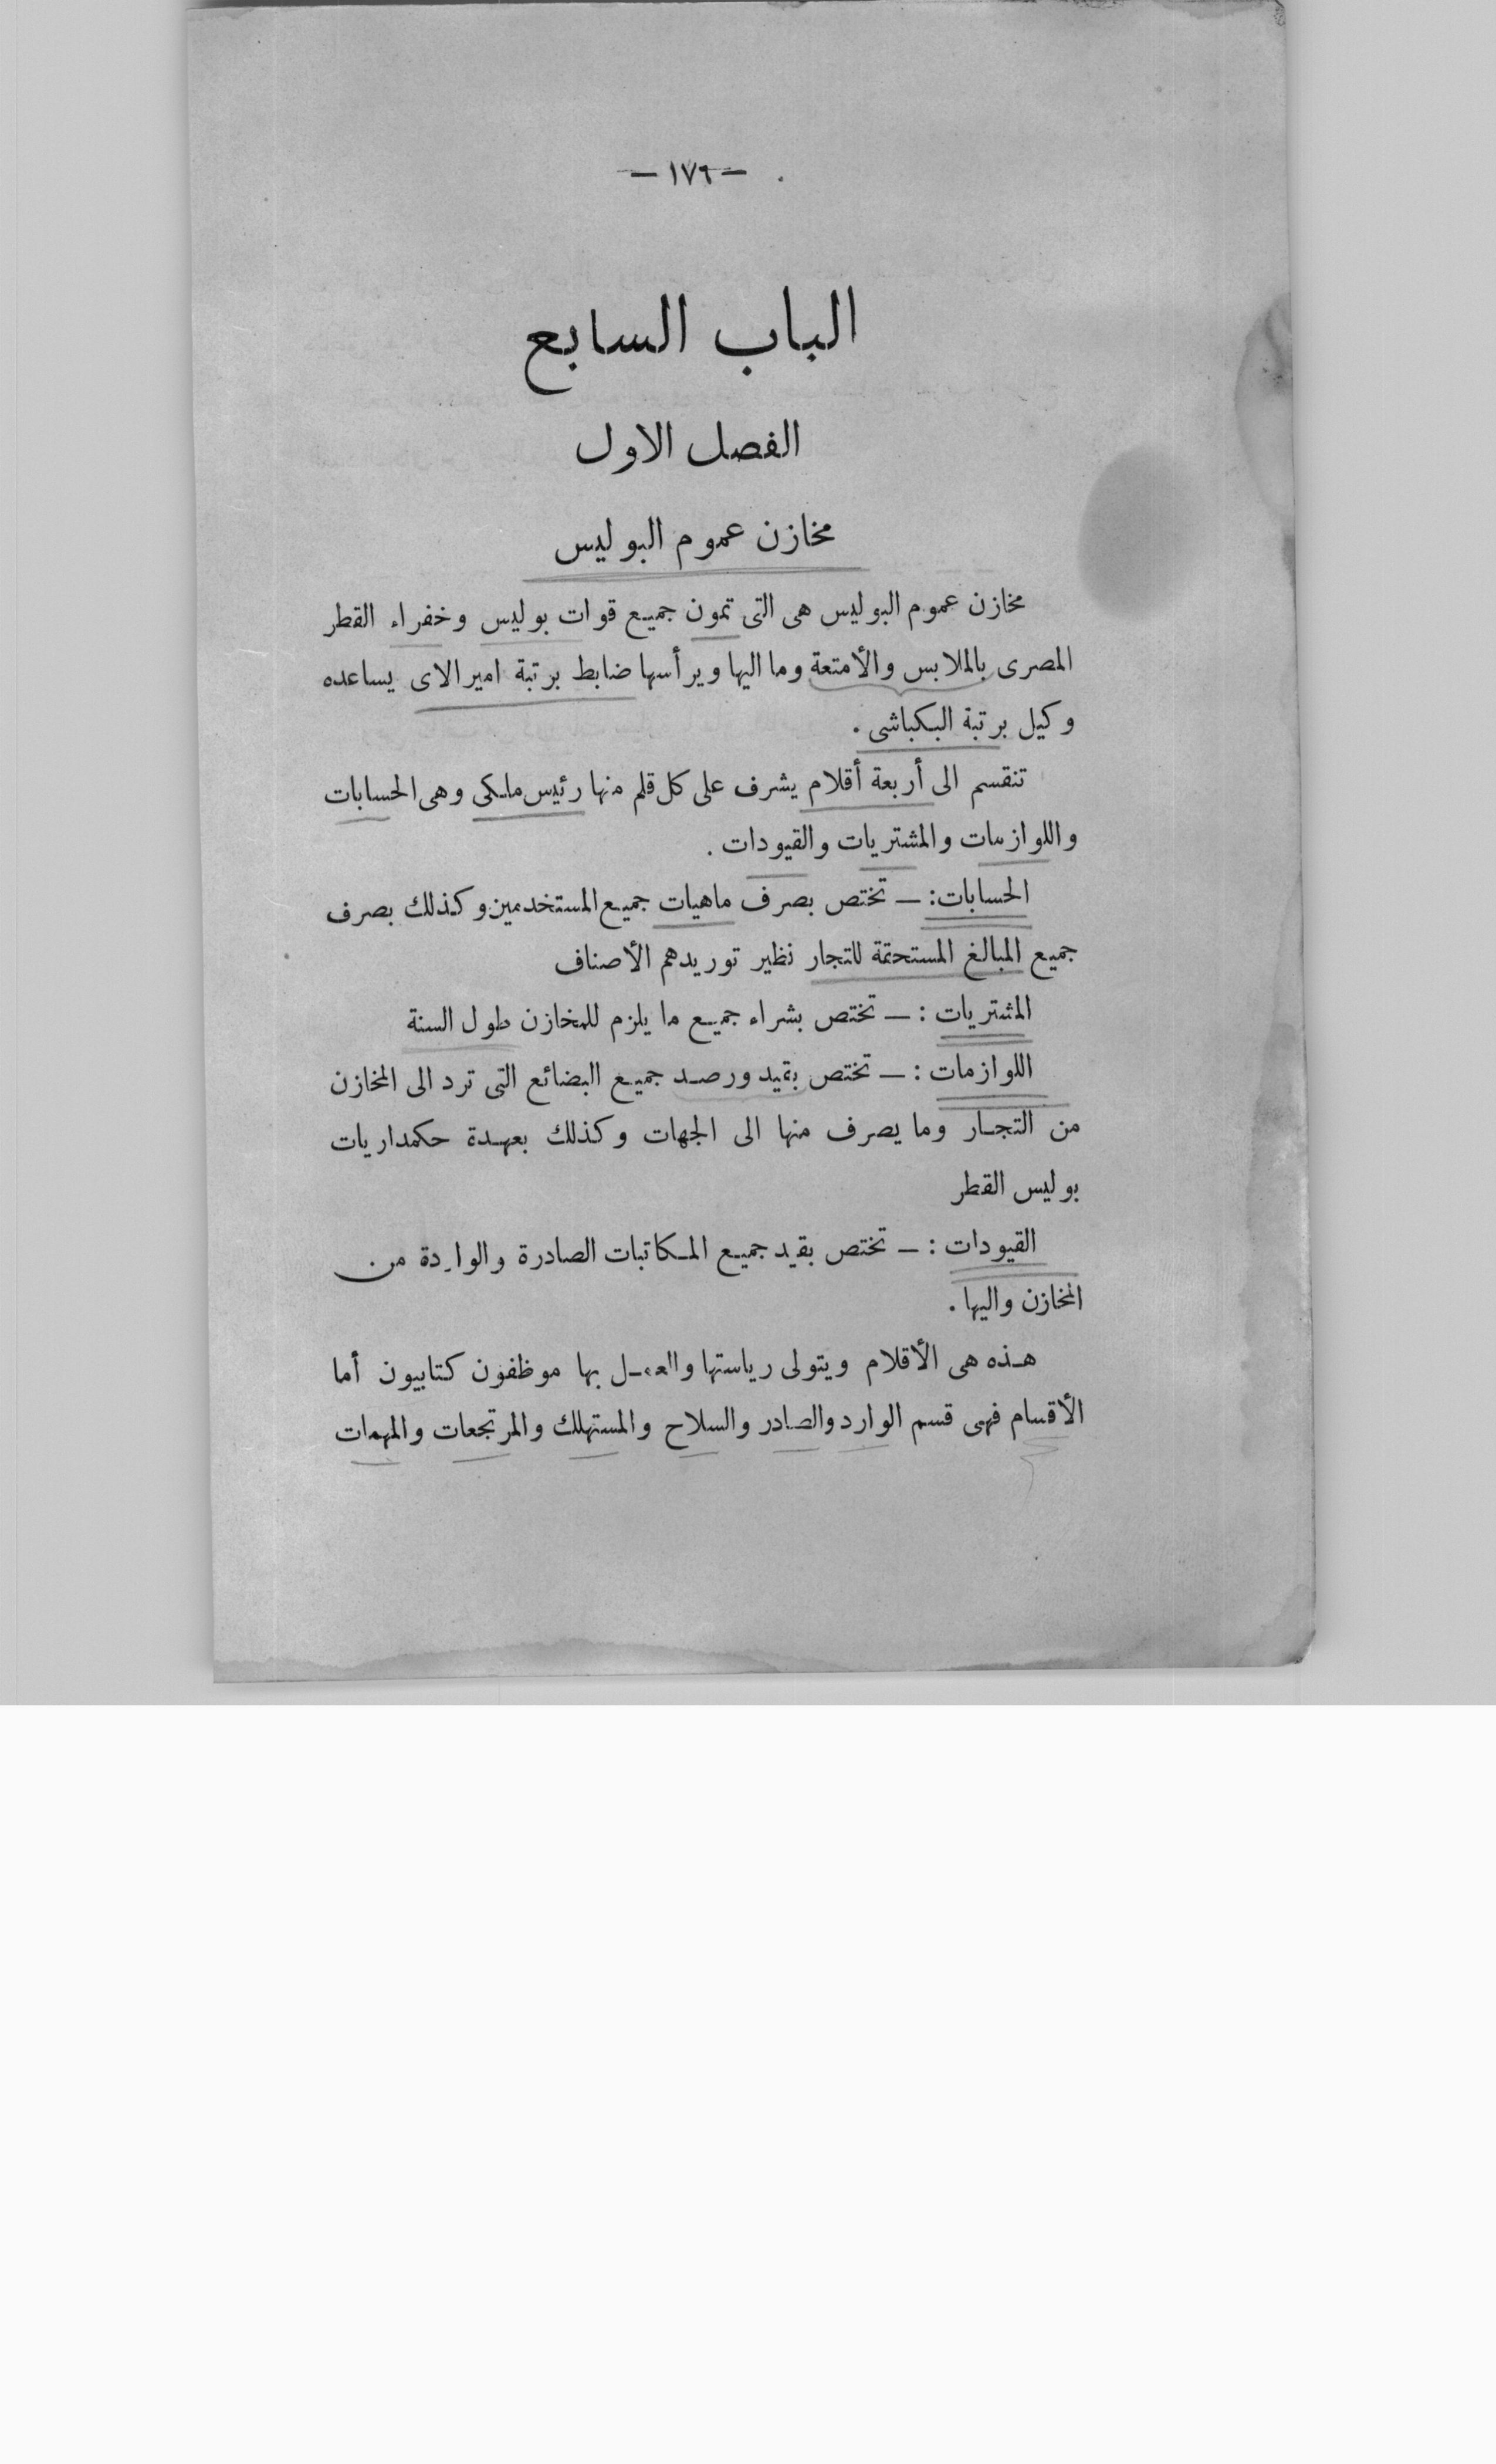 — ١٧٦ —
الباب السابع
الفصل الاول
مخازن عموم البوليس
مخازن عموم البوليس هى التى تمون جميع قوات بوليس وخفراء القطر
المصرى بالملابس والأمتعة وما اليها ويرأسها ضابط برتبة اميرالاى يساعده
وكيل برتبة البكباشى .
تنقسم الى أربعة أقلام يشرف على كل قلم منها رئيس ملكى وهى الحسابات
واللوازمات والمشتريات والقيودات .
الحسابات : — تختص بصرف ماهيات جميع المستخدمين وكذلك بصرف
جميع المبالغ المستحقة للتجار نظير توريدهم الأصناف
المشتريات : — تختص بشراء جميع ما يلزم للمخازن طول السنة
اللوازمات : — تختص بقيد ورصد جميع البضائع التى ترد الى المخازن
من التجار وما يصرف منها الى الجهات وكذلك بعهدة حكمداريات
بوليس القطر
القيودات : — تختص بقيد جميع المكاتبات الصادرة والواردة من
المخازن واليها .
هذه هى الأقلام ويتولى رياستها والعمل بها موظفون كتابيون أما
الأقسام فهى قسم الوارد والصادر والسلاح والمستهلك والمرتجعات والمهمات